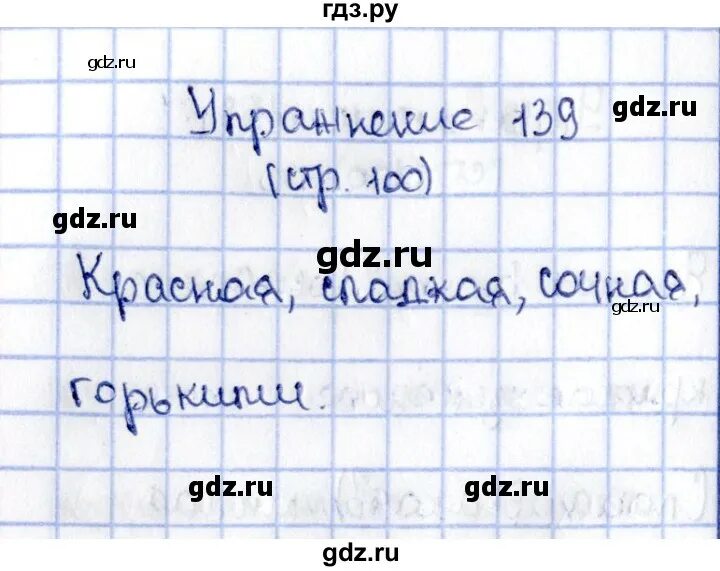 гдз.ру
gdz.ru
Упражнение 139
gdz.ru
(стр. 100)
gdz.ru
gdz.ru
Красная, сладкая, сочная,
gdz.ru
горькими.
gdz.ru
gdz.ru
gdz.ru